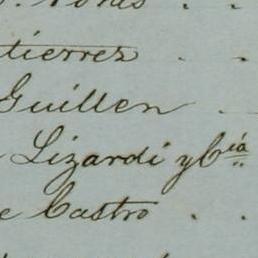 tierrez . .
Guillen . .
Lizardi y Cía
e Castro . .